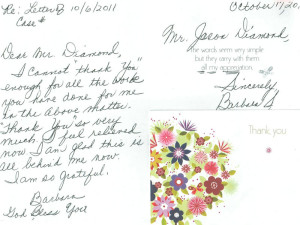 Re: Letter 10/6/2011
Case #
Dear Mr. Diamond,
I cannot "thank you"
enough for all the work
you have done for me
in the above matter.
"Thank You" so very
much. I feel relieved
now I am glad this is
all behind me now
I am so grateful.
Barbara
God Bless You
October 17/20,
Mr. Jacob Diamond,
the words seem very simple
but they carry with them
all my appreciation.
Sincerely,
Barbara
Thank you